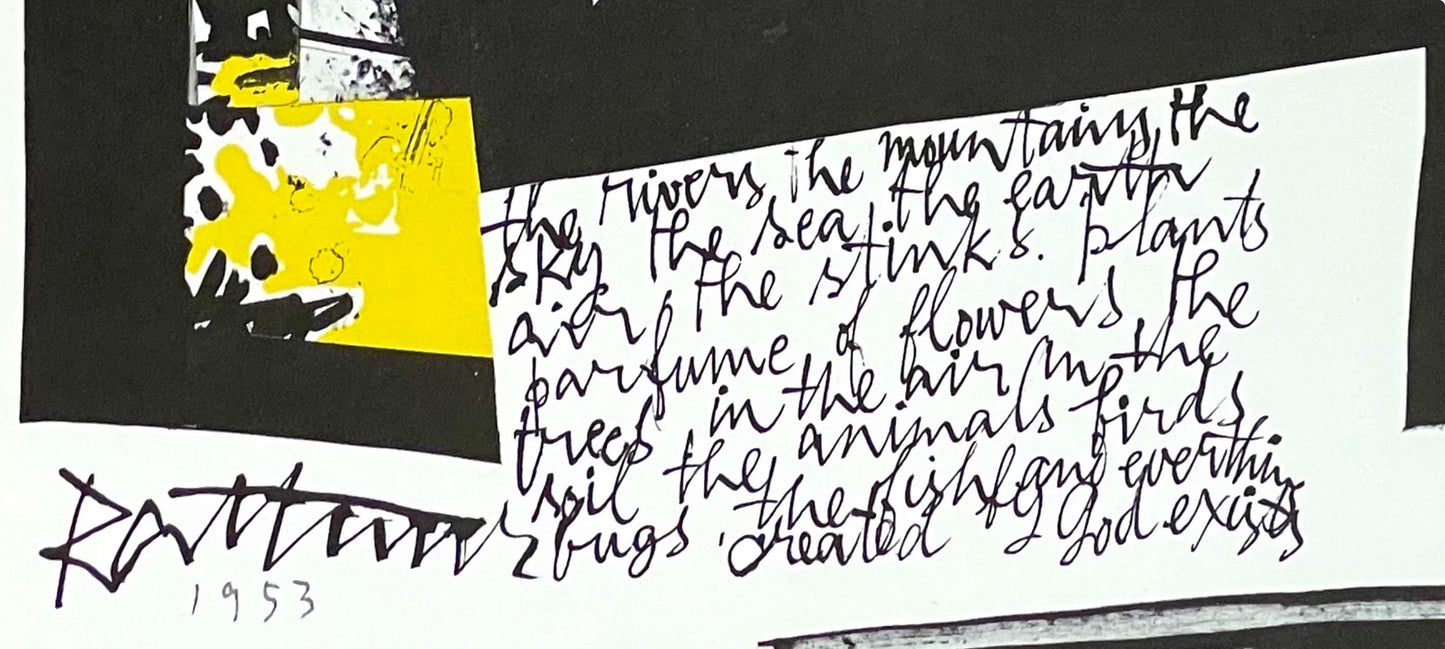 the rivers the mountains, the
sky the sea, the earth
air, the stinks. plants
parfume of flowers, the
trees in the air in the
soil the animals birds,
bugs. the fish and everthin
created by God exists
1953